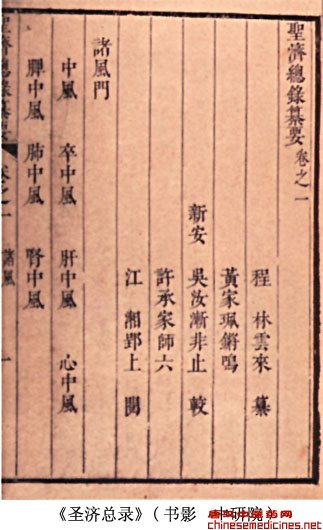 聖濟總錄纂要卷之一
程林雲來纂
黃家珮鏘鳴
新安吳汝漸非止較
許承家師六
江湘郢上閱
諸風門
中風 卒中風 肝中風 心中風
脾中風 肺中風 腎中風
聖濟總錄纂要 卷之一 諸風 一
《圣济总录》（书影
chinesemedicines.net